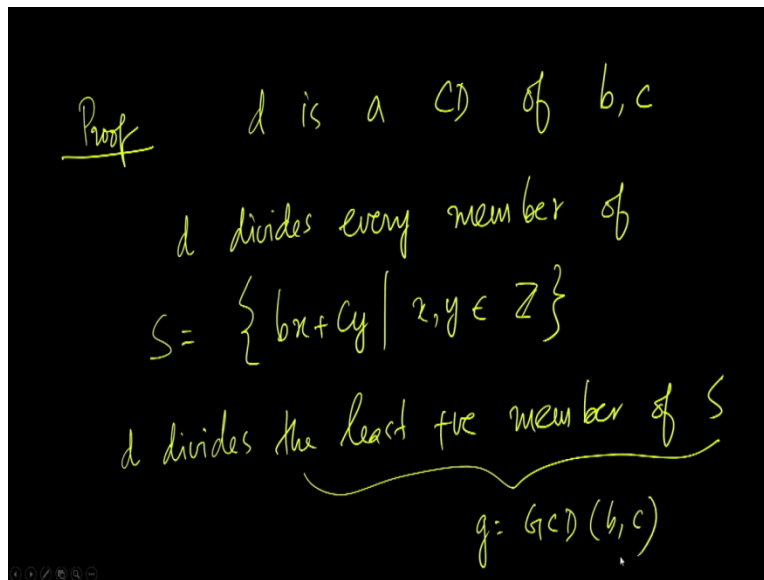 Proof d is a CD of b, c
d divides every member of
S = { bx + cy | x, y ∈ Z }
d divides the least +ve member of S
g = GCD (b, c)